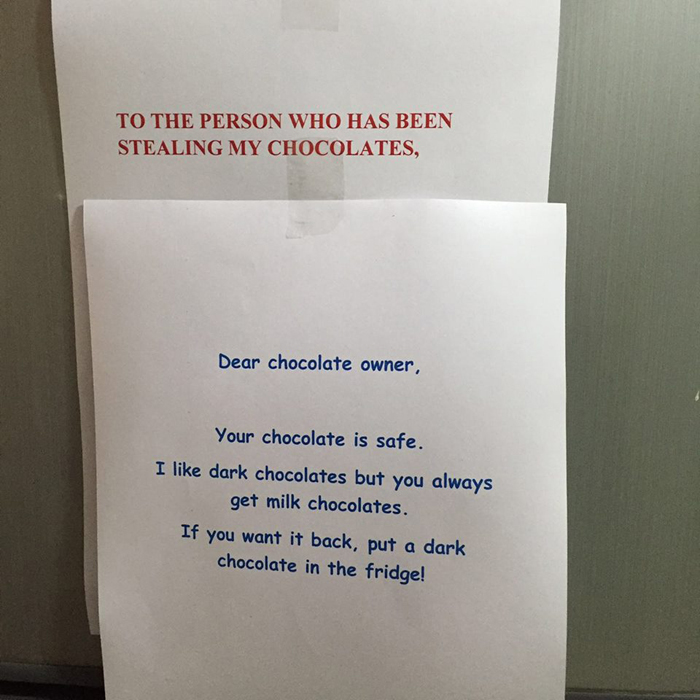 TO THE PERSON WHO HAS BEEN
STEALING MY CHOCOLATES,
Dear chocolate owner,
Your chocolate is safe.
I like dark chocolates but you always
get milk chocolates.
If you want it back, put a dark
chocolate in the fridge!